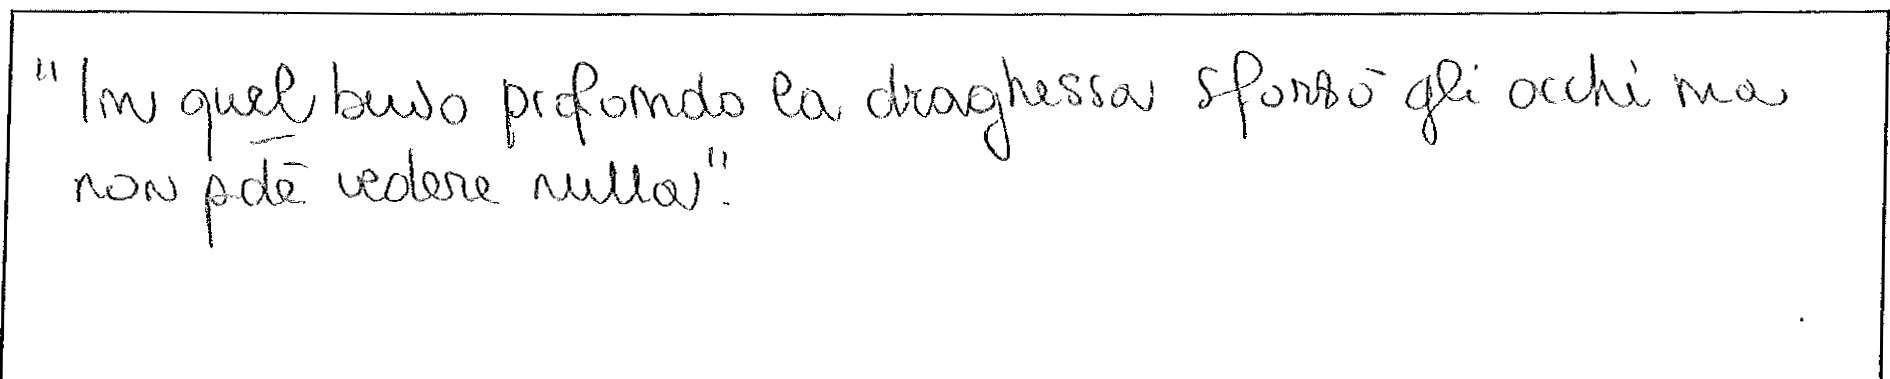 "In quel buio profondo la draghessa sforzò gli occhi ma
non potè vedere nulla".